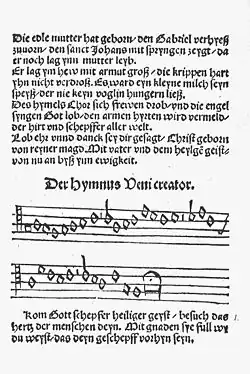 Die edle mutter hat geborn, den Gabriel verhyeß
zuuorn, den sanct Johans mit spryngen zeygt, da
er noch lag ynn mutter leyb.
Er lag ym hew mit armut groß, die krippen hart
yhn nicht verdroß. Es ward eyn kleyne milch seyn
speyß, der nie keyn voglin hungern ließ.
Des hymels Chor sich frewen drob, vnd die engel
syngen Got lob, den armen hyrten wird vermeld,
der hirt vnd schepffer aller welt.
Lob ehr vnnd danck sey dir gesagt, Christ geborn
von reyner magd. Mit vater vnd dem heylgē geist,
von nu an byß ynn ewigkeit.
Der Hymnus Veni creator.
Kom Gott schepfer heiliger geyst, besuch das
hertz der menschen deyn. Mit gnaden sye full wy
du weyst, das deyn geschepff vorhyn seyn.